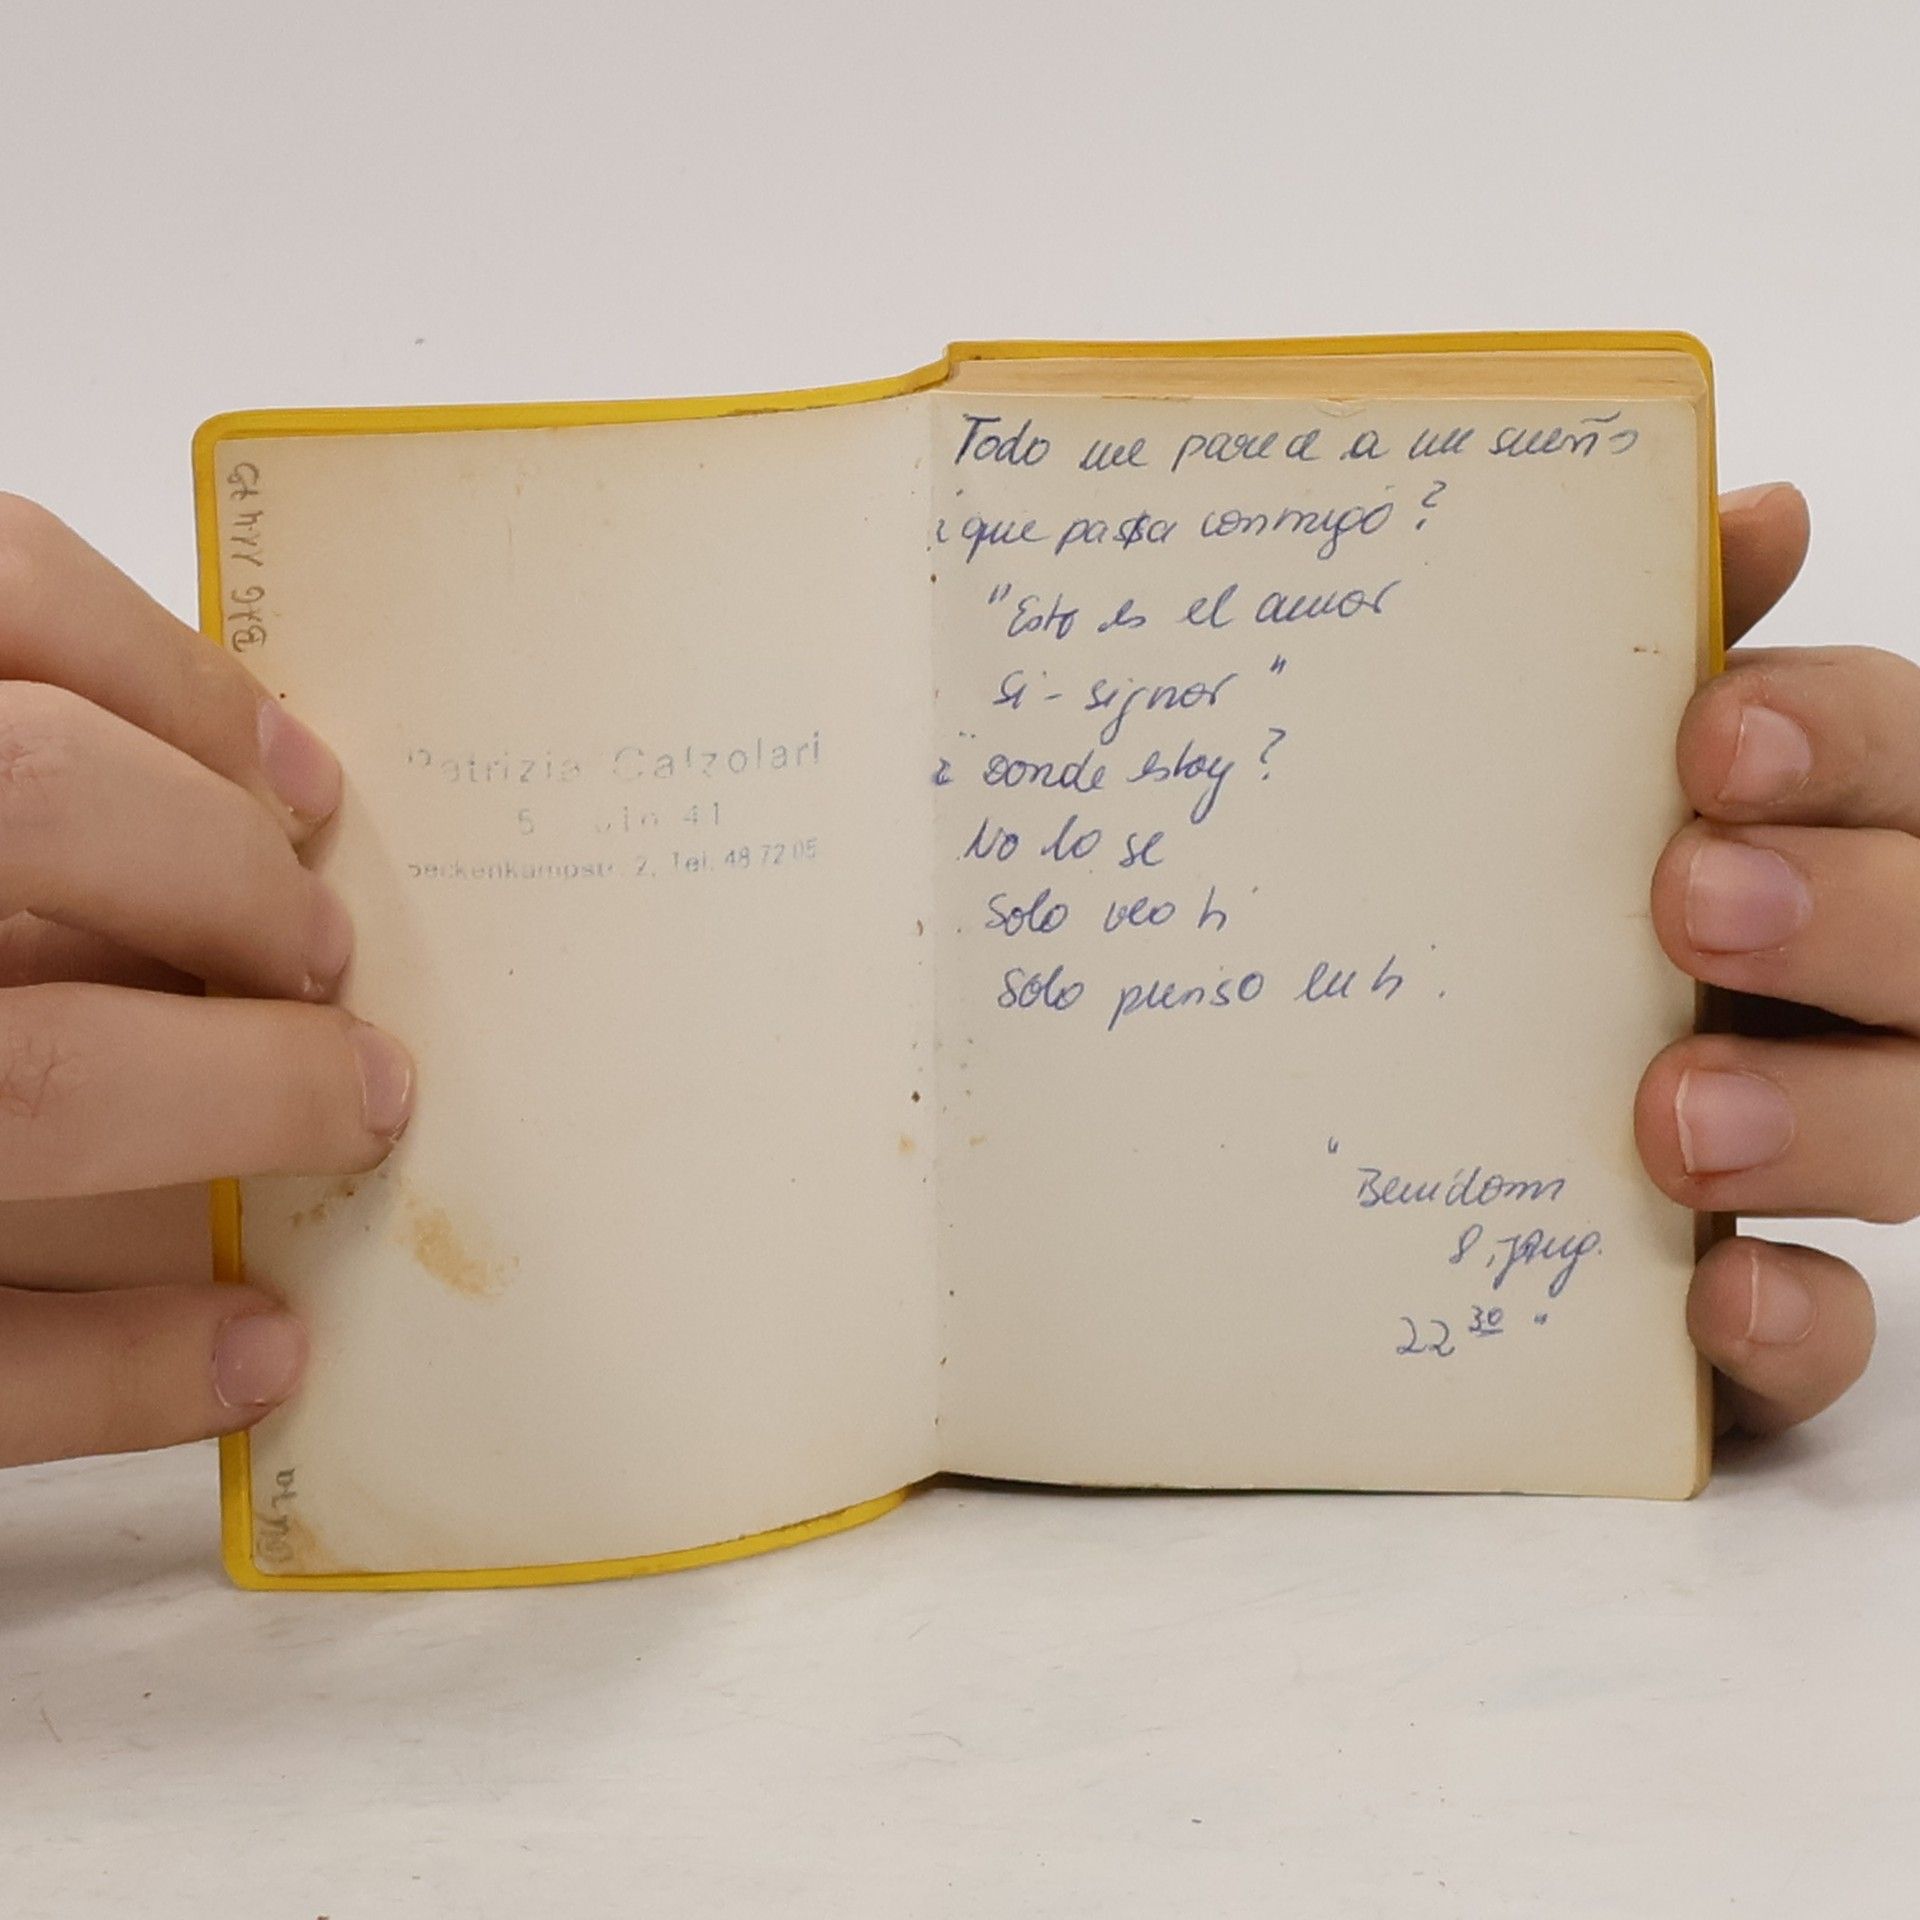 Patrizia Calzolari
5 41
2, Tel. 48 72 05
Todo me parece a un sueño
¿que passa conmigo?
"Esto es el amor
Si - signor"
¿ Donde estoy?
No lo se
Solo veo ti
Solo pienso en ti.
"Benidorm
8,
22 30"